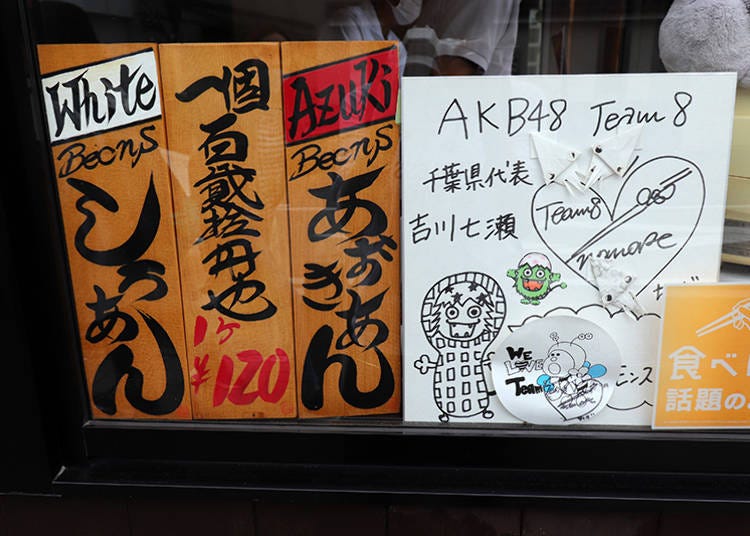 White
Beans
しろあん
一個
百貳拾円也
1ケ
¥120
Azuki
Beans
あずきあん
AKB48 Team 8
千葉県代表
吉川七瀬
Team8
nanase
WE
LOVE
Team
モンス
食べ
話題の